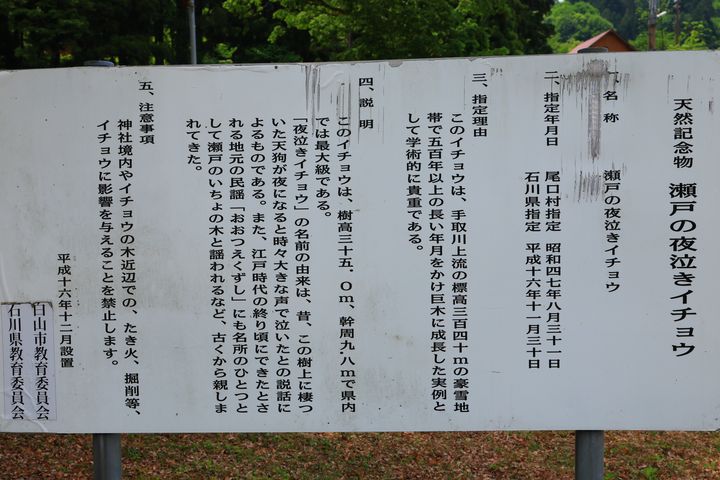 天然記念物　瀬戸の夜泣きイチョウ
一、名　称　　瀬戸の夜泣きイチョウ
二、指定年月日　　尾口村指定　昭和四七年八月三十一日
石川県指定　平成十六年十一月三十日
三、指定理由
このイチョウは、手取川上流の標高三百四十mの豪雪地
帯で五百年以上の長い年月をかけ巨木に成長した実例と
して学術的に貴重である。
四、説　明
このイチョウは、樹高三十五．０m、幹周九．八mで県内
では最大級である。
「夜泣きイチョウ」の名前の由来は、昔、この樹上に棲つ
いた天狗が夜になると時々大きな声で泣いたとの説話に
よるものである。また、江戸時代の終り頃にできたとさ
れる地元の民謡「おおつえくずし」にも名所のひとつと
して瀬戸のいちょの木と謡われるなど、古くから親しま
れてきた。
五、注意事項
神社境内やイチョウの木近辺での、たき火、掘削等、
イチョウに影響を与えることを禁止します。
平成十六年十二月設置
白山市教育委員会
石川県教育委員会